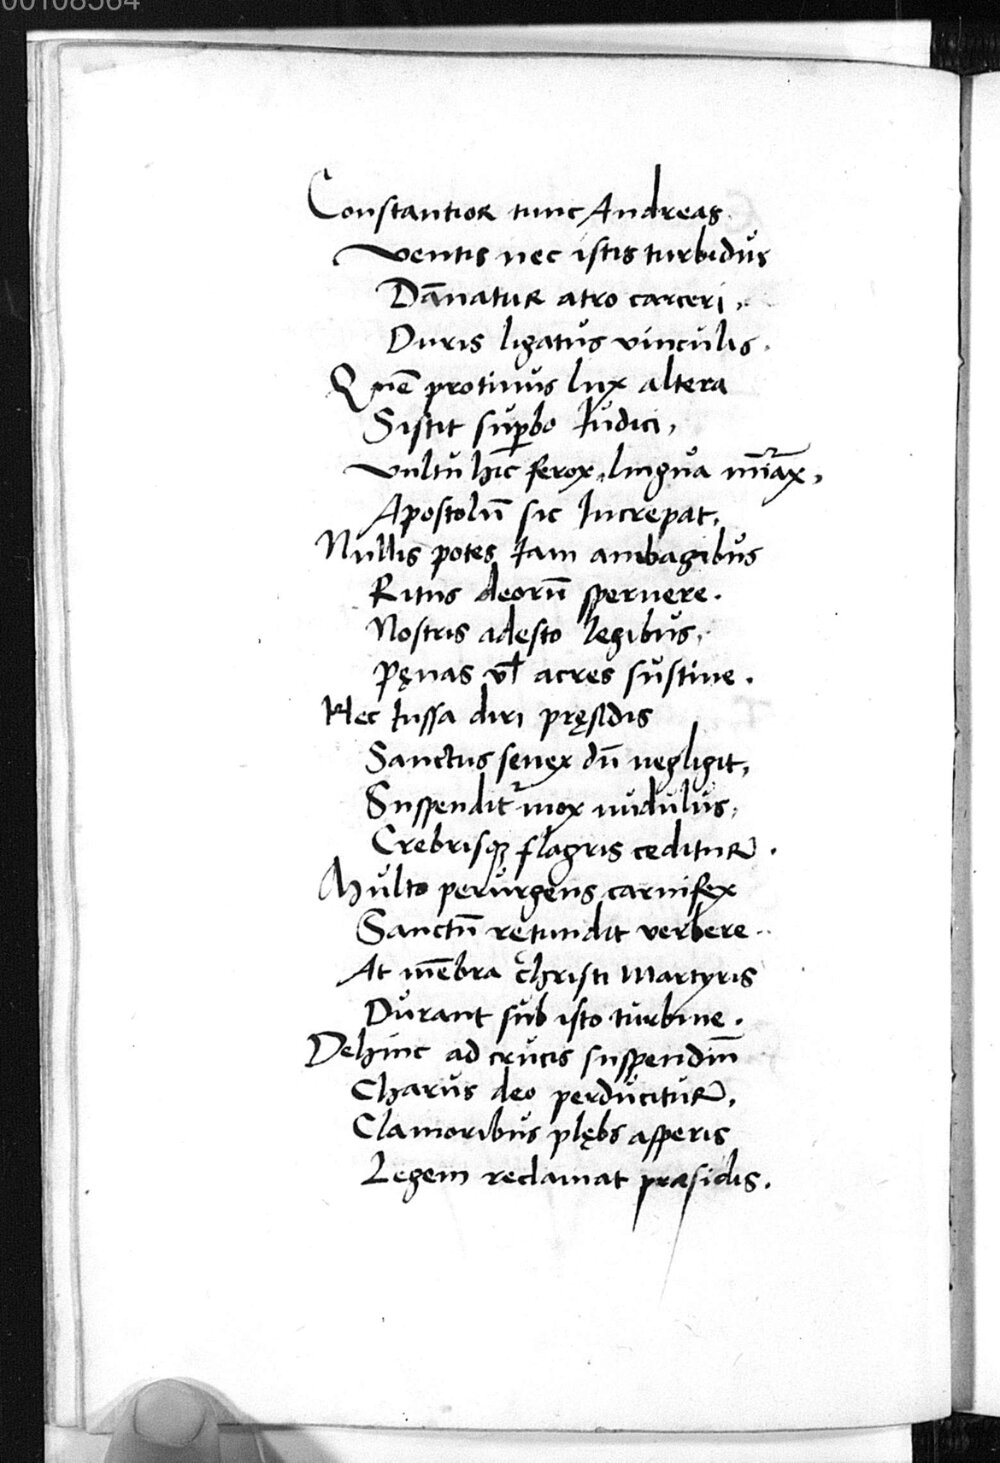 00108564
Constantior tunc Andreas
Ventis nec istis turbidus
Dānatur atro carceri,
Duris ligatus vinculis.
Quē protinus lux altera
Sistit suꝑbo Iudici,
Vultu hic ferox, lingua minax,
Apostolū sic Increpat,
Nullis potes Iam ambagibus
Ritus deorū spernere.
Nostris adesto legibus,
Pęnas vł acres sustine.
Hec Iussa diri pręsidis
Sanctus senex dū negligit,
Suspendit᷑ mox nudulus,
Crebrisqꝫ flagris ceditur.
Multo perurgens carnifex
Sanctū retundit verbere.
At mēbra christi Martyris
Durant sub isto turbine.
Dehinc ad crucis suspendiū
Charus deo perducitur,
Clamoribus plębs asperis
Legem reclamat præsidis.